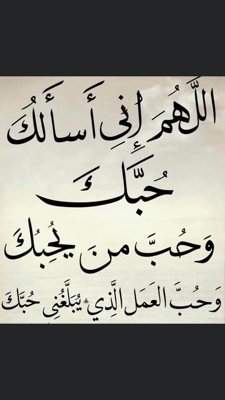 اللَّهُمَ إِنِي أَسأَلكُ
حُبَّكَ
وَحُبَّ منَ يُحِبُكَ
وَحُبَّ العَمَلِ الَّذِي يُبَلِّغُنِي حُبَّكَ